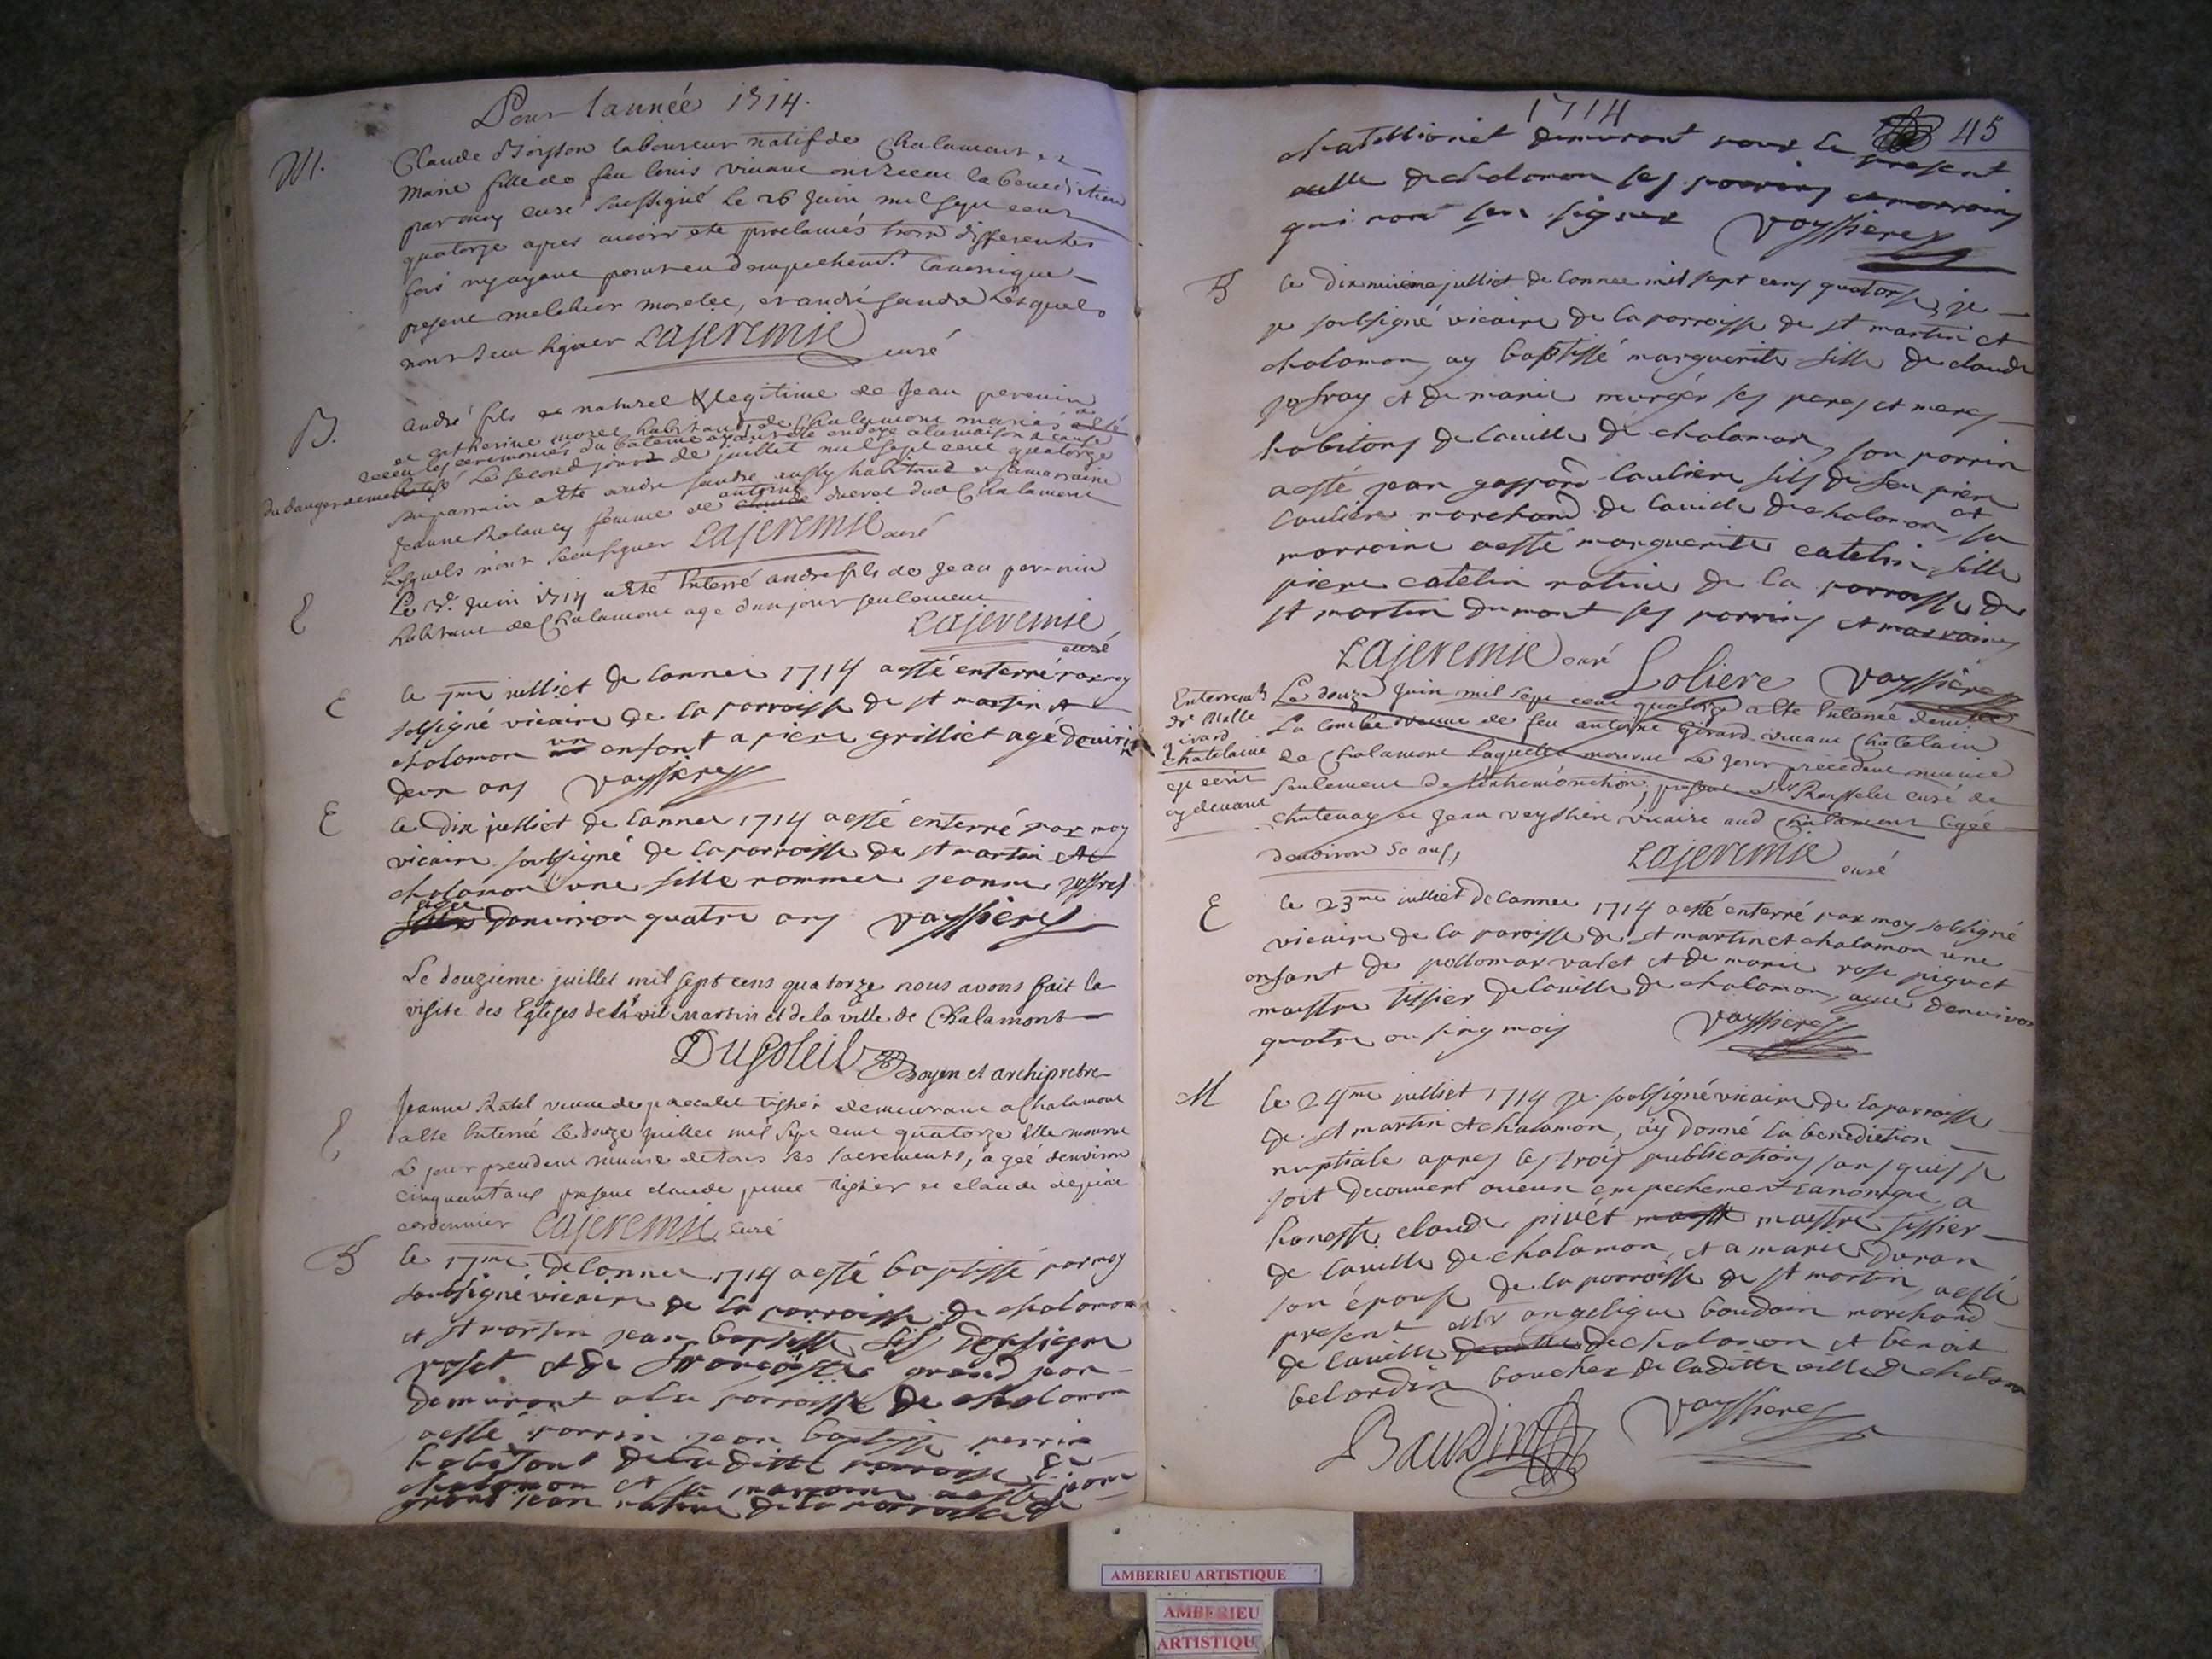 Pour l'année 1714.
M.
Claude Moisson laboureur natif de Chalamont et
Marie fille de feu louis vivant ont receu la benediction
par moy curé soussigné le 26 Juin mil sept cent
quatorze apres avoir eté proclamés trois differentes
fois ny ayant point eu d'empechement Canonique
present melchior morelle, et andré gaudre lesquels
n'ont sceu signer Lajeremie curé
B.
André fils et naturel & legitime de Jean pervenin
et catherine morel habitans de Chalamont mariés a esté
receu les ceremonies du bateme ayant eté endoyé a la maison a cause
du danger Le second jour de juillet mil sept cent quatorze
son parrain a été andre gaudre aussy habitant et sa marraine
Jeanne Rolancy femme de antoine duerel dud Chalamont
Lesquels n'ont sceu signer Lajeremie curé
E
Le 3e. Juin 1714 a eté Enterré andre fils de Jean pervenin
habitant de Chalamont agé d'un jour seulement
Lajeremie
curé
E
le 7me julliet de lannee 1714 a esté enterré par moy
solsigné vicaire de la parroisse de st martin et
chalamon un enfant a piere grilliet agé d'environ
deux ans Vayssieres
E
le dix julliet de lannee 1714 a esté enterré par moy
vicaire soubsigné de la parroisse de st martin et
chalamon une fille nommee jeanne joffrey
agée d'environ quatre ans Vayssieres
Le douzieme juillet mil sept cens quatorze nous avons fait la
visite des Eglises de st martin et de la ville de Chalamont
Dusoleil Doyen et archipretre
E
Jeanne Ratel veuve de tissier demeurant a Chalamont
a eté Enterrée Le douze juillet mil sept cent quatorze Elle mourut
Le jour precedent munie de tous les sacrements, agée d'environ
cinquant ans present claude tissier et claude
cordonnier Lajeremie curé
B
le 17me de lannee 1714 a esté baptissé par moy
soubsigné vicaire de la parroisse de chalamon
et st martin jean baptiste fils
roset et de françoise grand jean
demeurant a la parroisse de chalamon
a esté parrin jean baptiste perrin
habitant de laditte parroisse de
chalamon et sa marraine a esté jeane
grand jean native de la parroisse de
1714
45
chatillionet demeurant pour le present
ville de chalamon ses parrins et marraines
qui n'ont seu signer Vayssieres
B
le dixneuvieme julliet de lannee mil sept cens quatorse, je
je soubsigné vicaire de la parroisse de st martin et
chalamon, ay baptissé marguerite fille de claude
jofray et de marie murger ses peres et meres
habitans de la ville de chalamon, son parrin
a esté jean gaspard lauliere fils de feu piere
lauliere marchand de la ville de chalamon et sa
marraine a esté marguerite catelin fille
piere catelin native de la parroisse de
st martin du mont ses parrins et marraines
Lajeremie curé Loliere Vayssieres
Enterremt
de Malle
girard
chatelaine
est ecrit
cy devant
Le douze Juin mil sept cent quatorze a eté Enterrée
La Combe veuve de feu antoine Girard vivant Chatelain
de Chalamont Laquelle mourut Le jour precedent munie
seulement de l'extremonction, present Sr Rousselet curé de
chatenay et Jean Veyssiere vicaire aud Chalamont agée
d'environ 50 ans,
Lajeremie curé
E
le 23me julliet de lannee 1714 a esté enterré par moy solsigné
vicaire de la paroisse de st martin et chalamon une
enfant de valet et de marie rose piquet
maistre tissier de la ville de chalamon, agee denviron
quatre ou sinq mois Vayssieres
M
le 24me julliet 1714 je soubsigné vicaire de la parroisse
de st martin et chalamon, ay donné la benediction
nuptiale apres les trois publications sans quil se
soit decouvert aucun empechement canonique a
honeste claude pivét maistre tissier
de la ville de chalamon, et a marie Duran
son épouse de la parroisse de st martin, a esté
present Mr angelique baudain marchand
de la ville de chalamon et benoit
belardin boucher de laditte ville de chalamon
Baudin Vayssieres
AMBERIEU ARTISTIQUE
AMBERIEU
ARTISTIQU